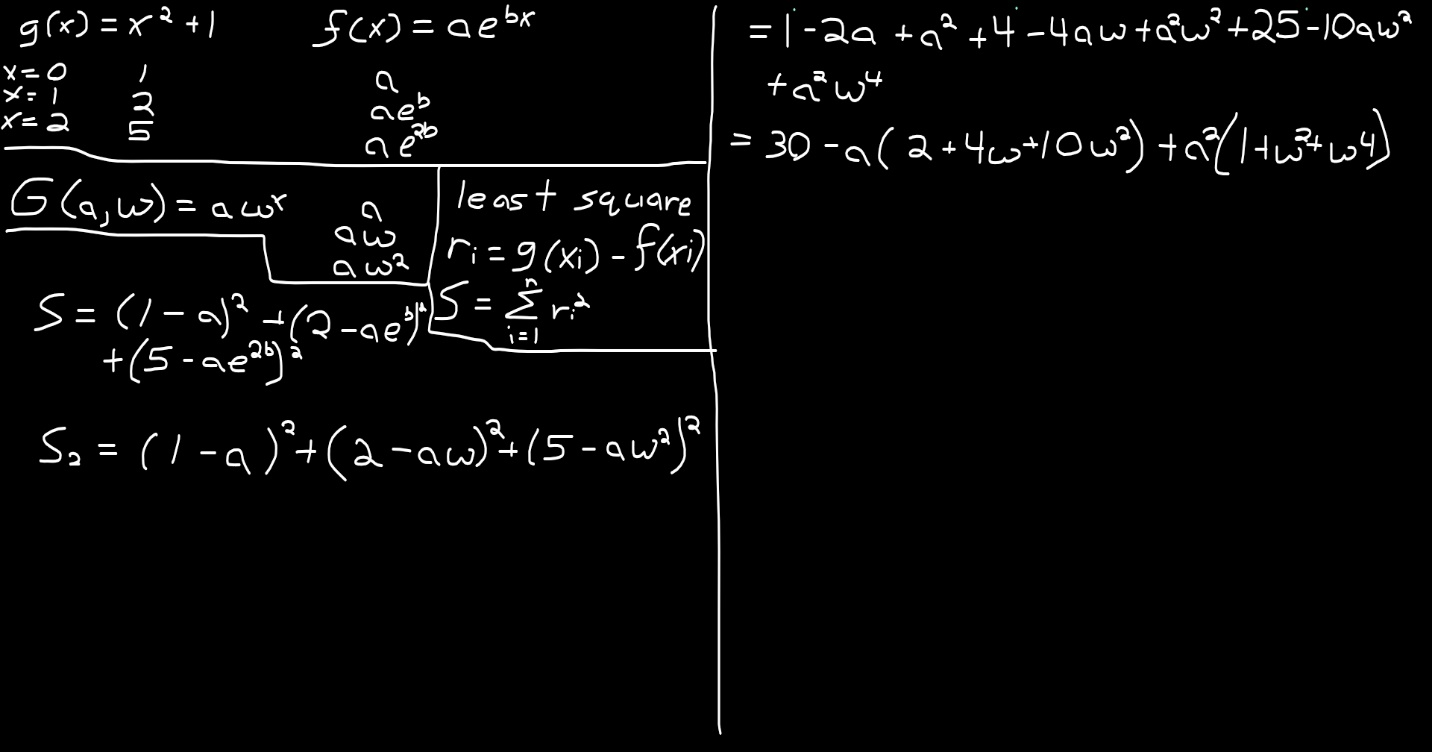 g(x) = x² + 1 f(x) = ae^{bx}
x = 0 1 a
x = 1 2 ae^{b}
x = 2 5 ae^{2b}
G(a, w) = aw^{x} a
aw
aw²
least square
r_i = g(x_i) - f(x_i)
S = \sum_{i=1}^{n} r_i²
S = (1 - a)² + (2 - ae^{b})²
+ (5 - ae^{2b})²
S₂ = (1 - a)² + (2 - aw)² + (5 - aw²)²
= 1 - 2a + a² + 4 - 4aw + a²w² + 25 - 10aw²
+ a²w⁴
= 30 - a(2 + 4w + 10w²) + a²(1 + w² + w⁴)